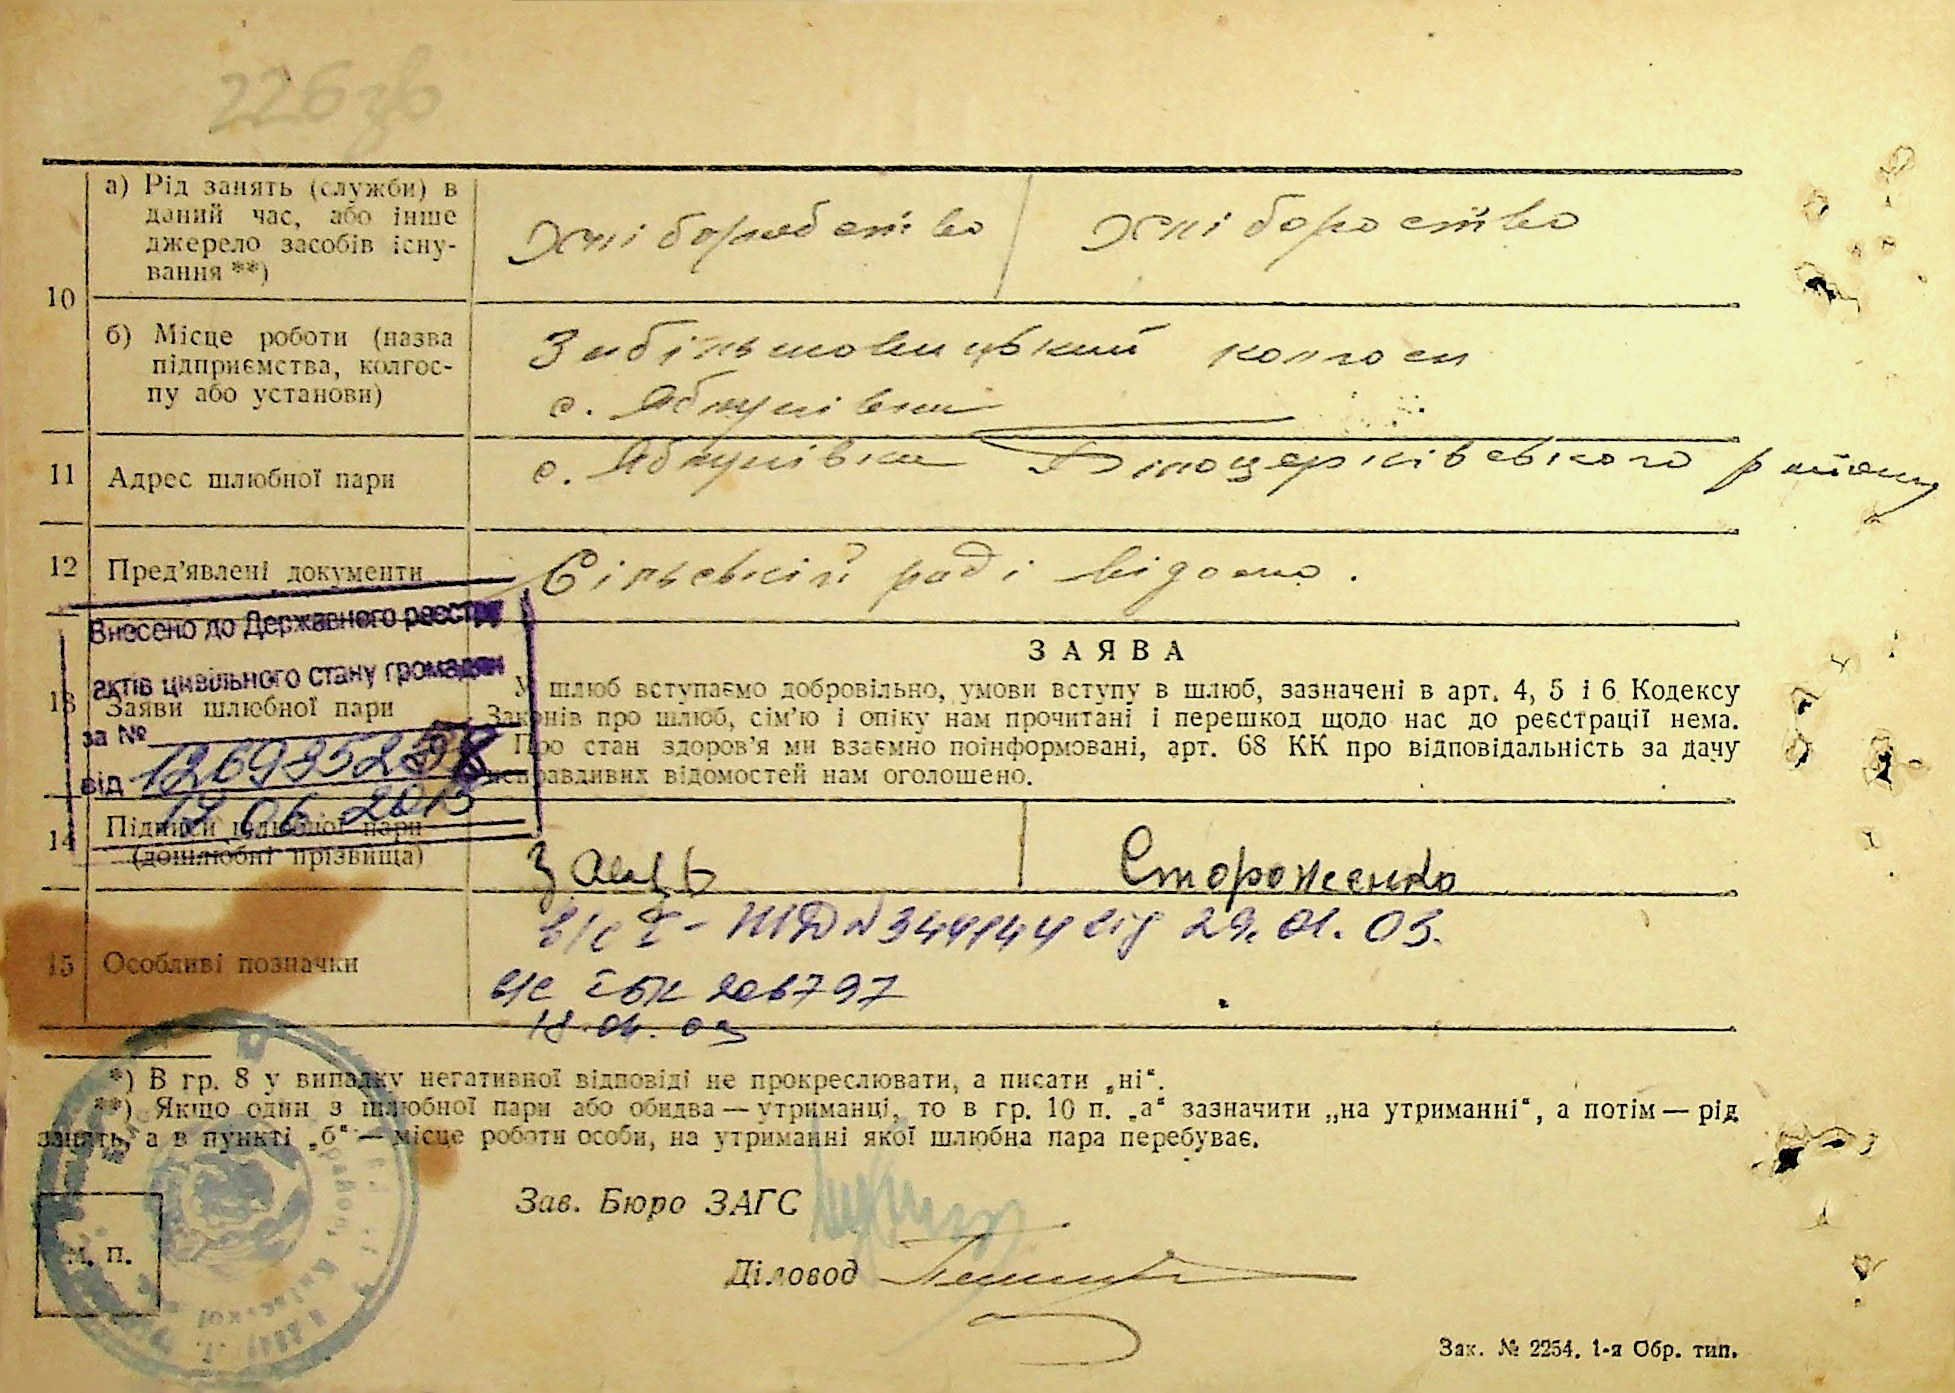 226 зв
а) Рід занять (служби) в
даний час, або інше
джерело засобів існу-
вання **)
хліборобство хліборoство
10
б) Місце роботи (назва
підприємства, колгос-
пу або установи)
колгосп
с. Яблунівка
11 Адрес шлюбної пари
с. Яблунівка Білоцерківського району
12 Пред'явлені документи
Сільській раді відомо.
Внесено до Державного реєстру
актів цивільного стану громадян
за №
від
13 Заяви шлюбної пари
ЗАЯВА
У шлюб вступаємо добровільно, умови вступу в шлюб, зазначені в арт. 4, 5 і 6 Кодексу
Законів про шлюб, сім'ю і опіку нам прочитані і перешкод щодо нас до реєстрації нема.
Про стан здоров'я ми взаємно поінформовані, арт. 68 КК про відповідальність за дачу
неправдивих відомостей нам оголошено.
14 Підписи шлюбної пари
(дошлюбні прізвища)
Заяць Стороженко
15 Особливі позначки
в/с І- № 344144 від 29.01.03.
в/с І БК
*) В гр. 8 у випадку негативної відповіді не прокреслювати, а писати „ні“.
**) Якщо один з шлюбної пари або обидва — утриманці, то в гр. 10 п. „а“ зазначити „на утриманні“, а потім — рід
занять, а в пункті „б“ — місце роботи особи, на утриманні якої шлюбна пара перебуває.
Зав. Бюро ЗАГС
Діловод
м. п.
Зак. № 2254. 1-я Обр. тип.